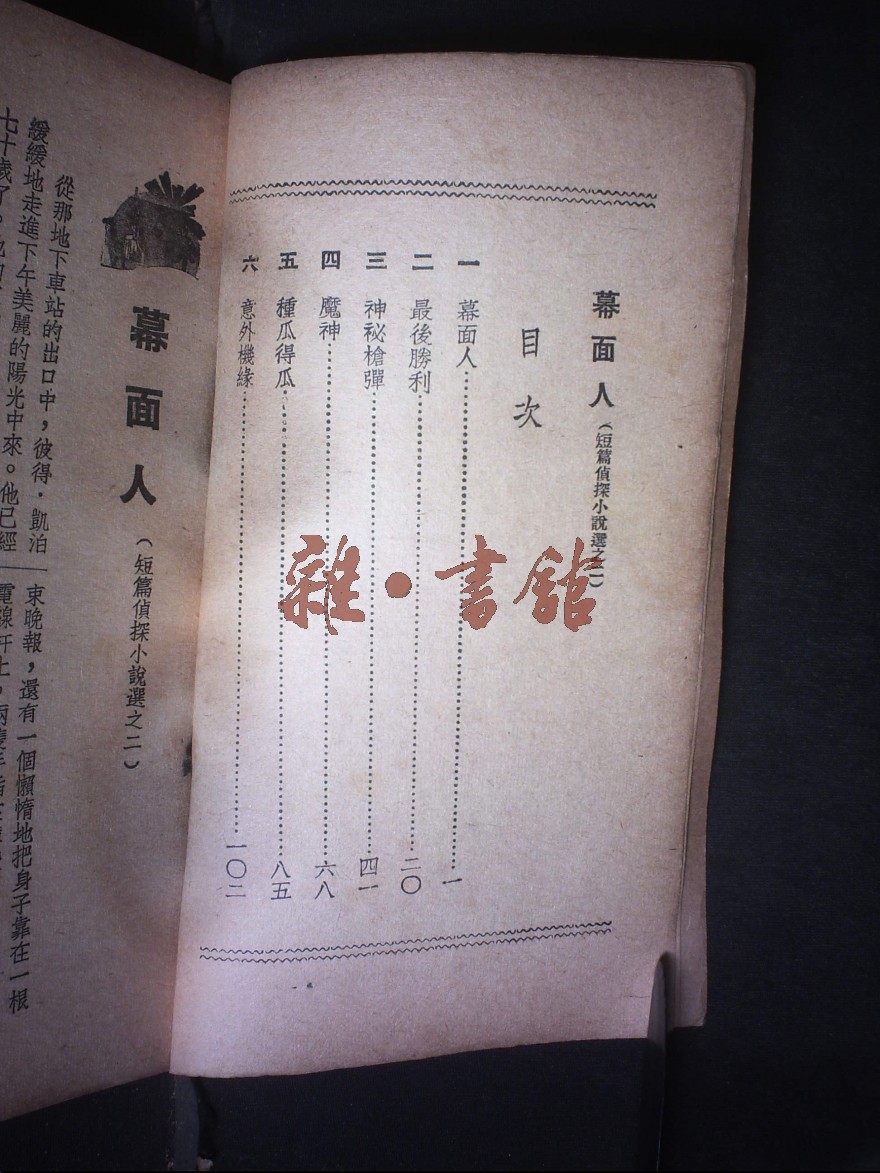 幕面人（短篇偵探小說選之二）
目次
一 幕面人……一
二 最後勝利……二〇
三 神祕槍彈……四一
四 魔神……六八
五 種瓜得瓜……八五
六 意外機緣……一〇二
雜·書館
幕面人（短篇偵探小說選之二）
從那地下車站的出口中，彼得·凱泊
緩緩地走進下午美麗的陽光中來。他已經
七十歲了。
東晚報，還有一個懶惰地把身子靠在一根